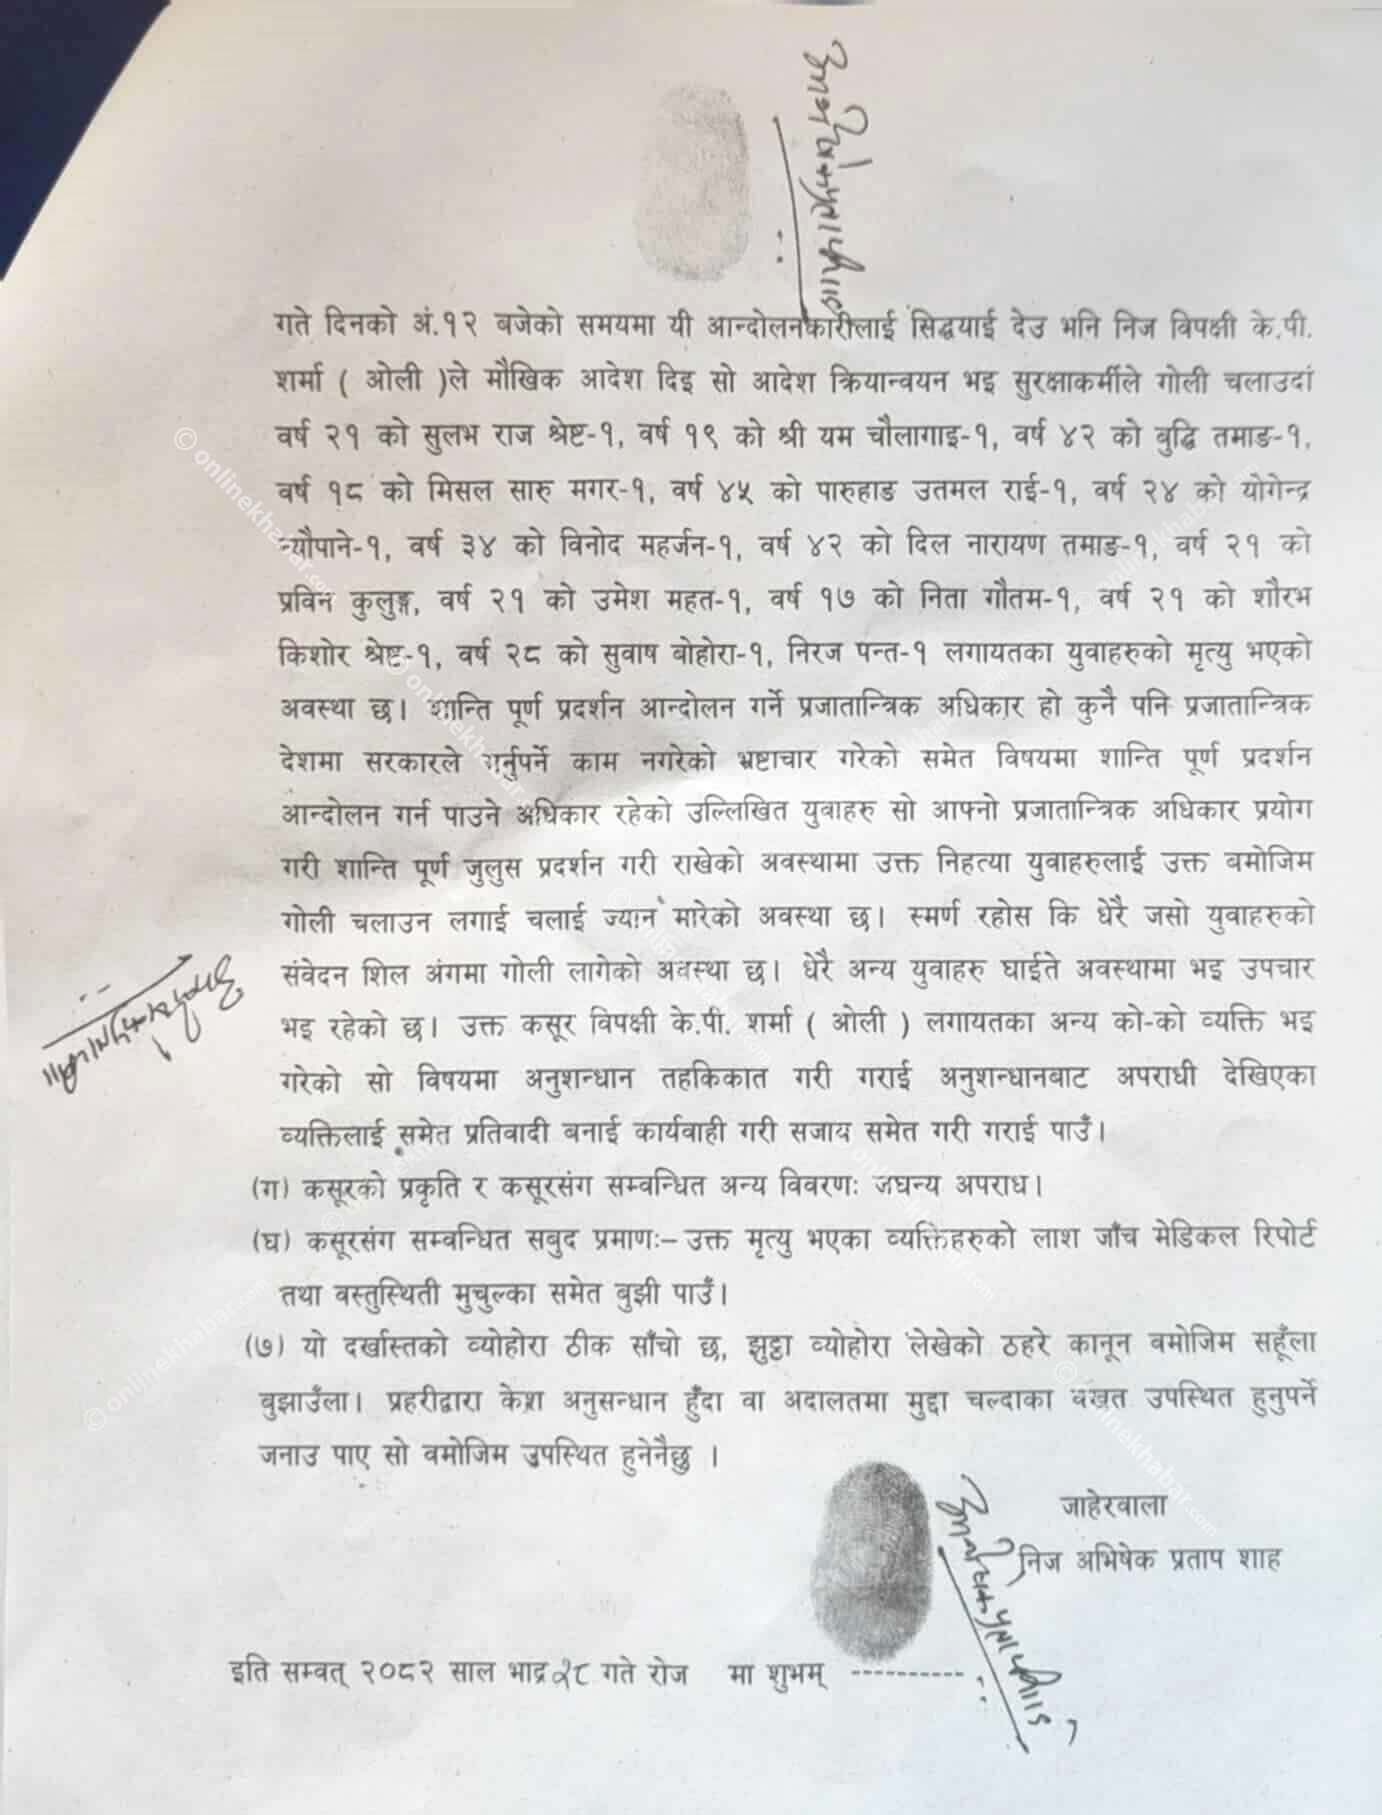 गते दिनको अं.१२ बजेको समयमा यी आन्दोलनकारीलाई सिद्धयाई देउ भनि निज विपक्षी के.पी.
शर्मा ( ओली )ले मौखिक आदेश दिइ सो आदेश क्रियान्वयन भइ सुरक्षाकर्मीले गोली चलाउदां
वर्ष २१ को सुलभ राज श्रेष्ट-१, वर्ष १९ को श्री यम चौलागाइ-१, वर्ष ४२ को बुद्धि तमाङ-१,
वर्ष १८ को मिसल सारु मगर-१, वर्ष ४५ को पारुहाङ उतमल राई-१, वर्ष २४ को योगेन्द्र
न्यौपाने-१, वर्ष ३४ को विनोद महर्जन-१, वर्ष ४२ को दिल नारायण तमाङ-१, वर्ष २१ को
प्रविन कुलुङ्ग, वर्ष २१ को उमेश महत-१, वर्ष १७ को निता गौतम-१, वर्ष २१ को शौरभ
किशोर श्रेष्ट-१, वर्ष २८ को सुवाष बोहोरा-१, निरज पन्त-१ लगायतका युवाहरुको मृत्यु भएको
अवस्था छ। शान्ति पूर्ण प्रदर्शन आन्दोलन गर्ने प्रजातान्त्रिक अधिकार हो कुनै पनि प्रजातान्त्रिक
देशमा सरकारले गर्नुपर्ने काम नगरेको भ्रष्टाचार गरेको समेत विषयमा शान्ति पूर्ण प्रदर्शन
आन्दोलन गर्न पाउने अधिकार रहेको उल्लिखित युवाहरु सो आफ्नो प्रजातान्त्रिक अधिकार प्रयोग
गरी शान्ति पूर्ण जुलुस प्रदर्शन गरी राखेको अवस्थामा उक्त निहत्या युवाहरुलाई उक्त बमोजिम
गोली चलाउन लगाई चलाई ज्यान मारेको अवस्था छ। स्मर्ण रहोस कि धेरै जसो युवाहरुको
संवेदन शिल अंगमा गोली लागेको अवस्था छ। धेरै अन्य युवाहरु घाईते अवस्थामा भइ उपचार
भइ रहेको छ। उक्त कसूर विपक्षी के.पी. शर्मा ( ओली ) लगायतका अन्य को-को व्यक्ति भइ
गरेको सो विषयमा अनुशन्धान तहकिकात गरी गराई अनुशन्धानबाट अपराधी देखिएका
व्यक्तिलाई समेत प्रतिवादी बनाई कार्यवाही गरी सजाय समेत गरी गराई पाउँ।
(ग) कसूरको प्रकृति र कसूरसंग सम्वन्धित अन्य विवरणः जघन्य अपराध।
(घ) कसूरसंग सम्वन्धित सबुद प्रमाणः– उक्त मृत्यु भएका व्यक्तिहरुको लाश जाँच मेडिकल रिपोर्ट
तथा वस्तुस्थिती मुचुल्का समेत बुझी पाउँ।
(७) यो दर्खास्तको व्योहोरा ठीक साँचो छ, झुट्ठा व्योहोरा लेखेको ठहरे कानून वमोजिम सहूँला
बुझाउँला। प्रहरीद्वारा केश अनुसन्धान हुँदा वा अदालतमा मुद्दा चल्दाका बखत उपस्थित हुनुपर्ने
जनाउ पाए सो वमोजिम उपस्थित हुनेनैछु ।
जाहेरवाला
निज अभिषेक प्रताप शाह
इति सम्वत् २०८२ साल भाद्र २८ गते रोज मा शुभम् -----------
© onlinekhabar.com
© onlinekhabar.com
© onlinekhabar.com
© onlinekhabar.com